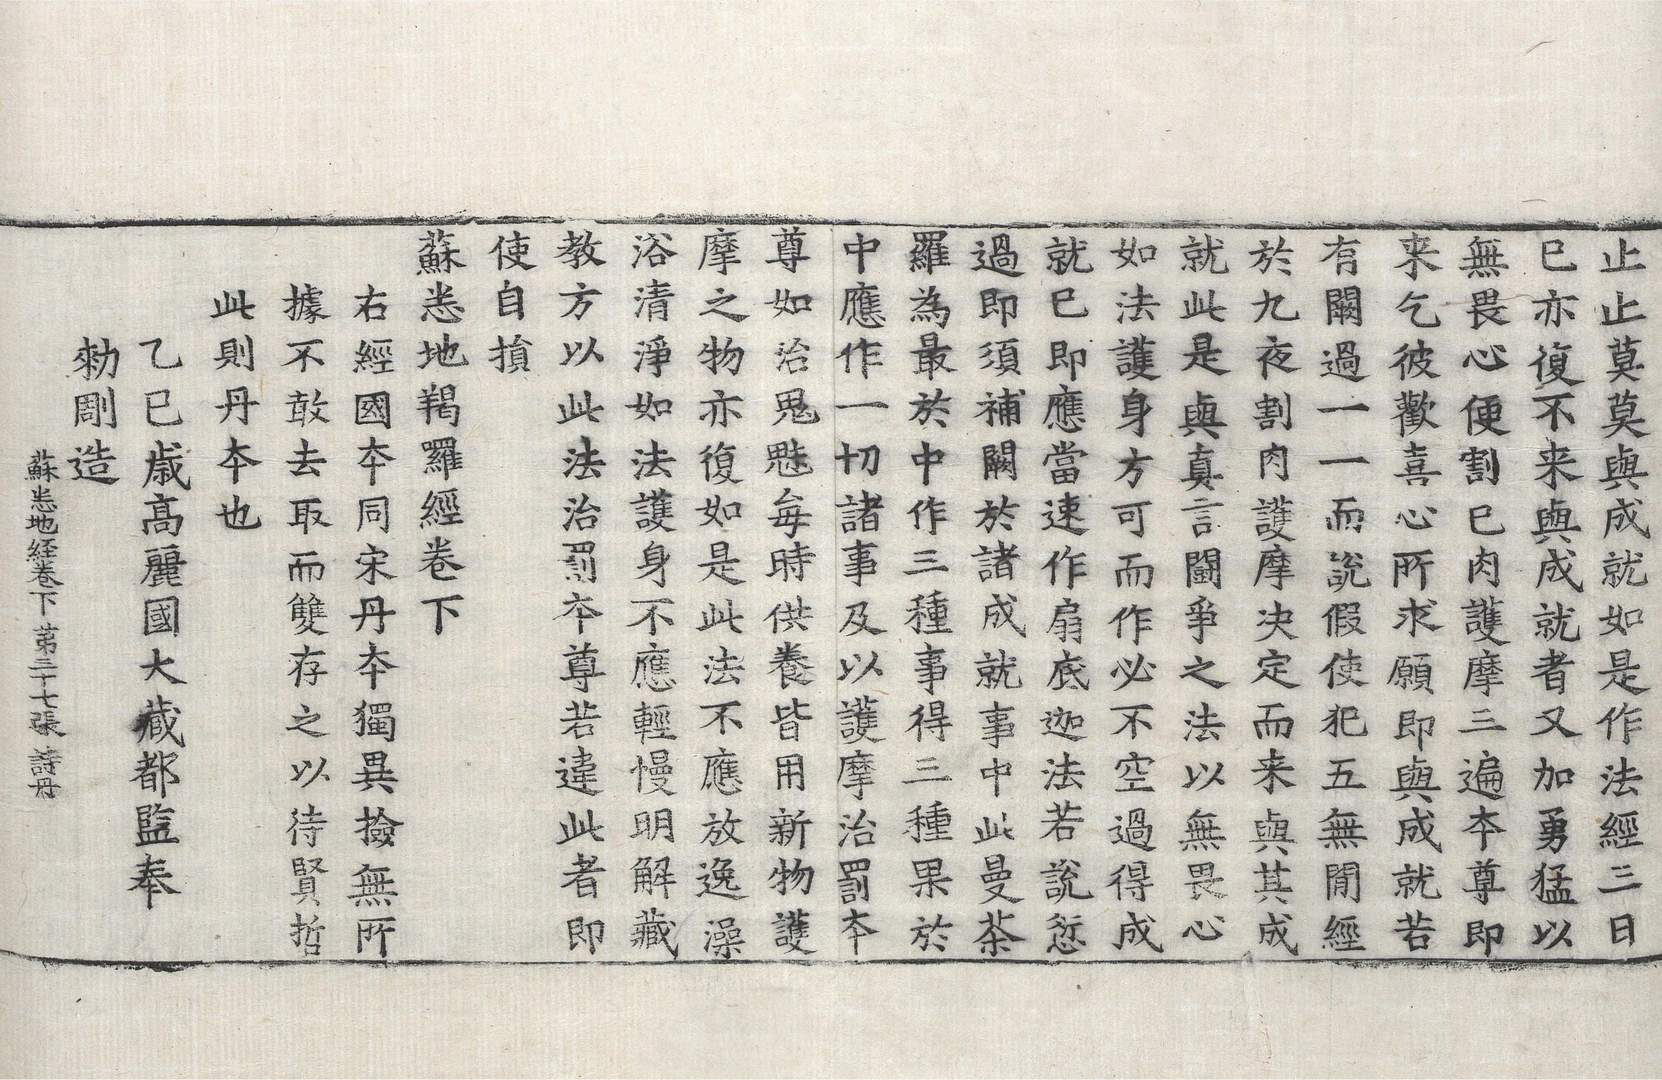 止止莫莫與成就如是作法經三日
已亦復不来與成就者又加勇猛以
無畏心便割已肉護摩三遍夲尊即
来乞彼歡喜心所求願即與成就若
有闕過一一而說假使犯五無閒經
於九夜割肉護摩决定而来與其成
就此是與真言鬪爭之法以無畏心
如法護身方可而作必不空過得成
就已即應當速作扇底迦法若說愆
過即須補闕於諸成就事中此曼荼
羅為最於中作三種事得三種果於
中應作一切諸事及以護摩治罰夲
尊如治鬼魅每時供養皆用新物護
摩之物亦復如是此法不應放逸澡
浴清淨如法護身不應輕慢明解藏
教方以此法治罰夲尊若違此者即
使自損
蘇悉地羯羅經卷下
右經國夲同宋丹夲獨異撿無所
據不敢去取而雙存之以待賢哲
此則丹夲也
乙巳歲高麗國大藏都監奉
勅彫造
蘇悉地経卷下 苐三十七張 詩丹